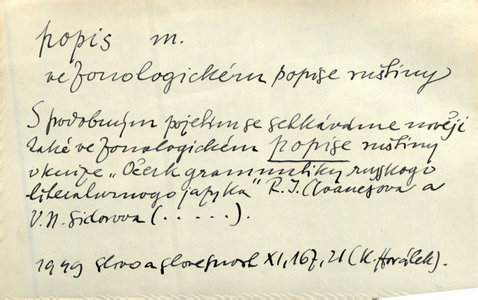 popis m.
ve fonologickém popise ruštiny
S podobným pojetím se setkáváme nověji
také ve fonologickém popise ruštiny
v knize „Očerk grammatiky russkogo
literaturnogo jazyka" R. I. Avanesova a
V. N. Sidorova (.....).
1949 Slovo a slovesnost XI, 167, 21 (K. Horálek).